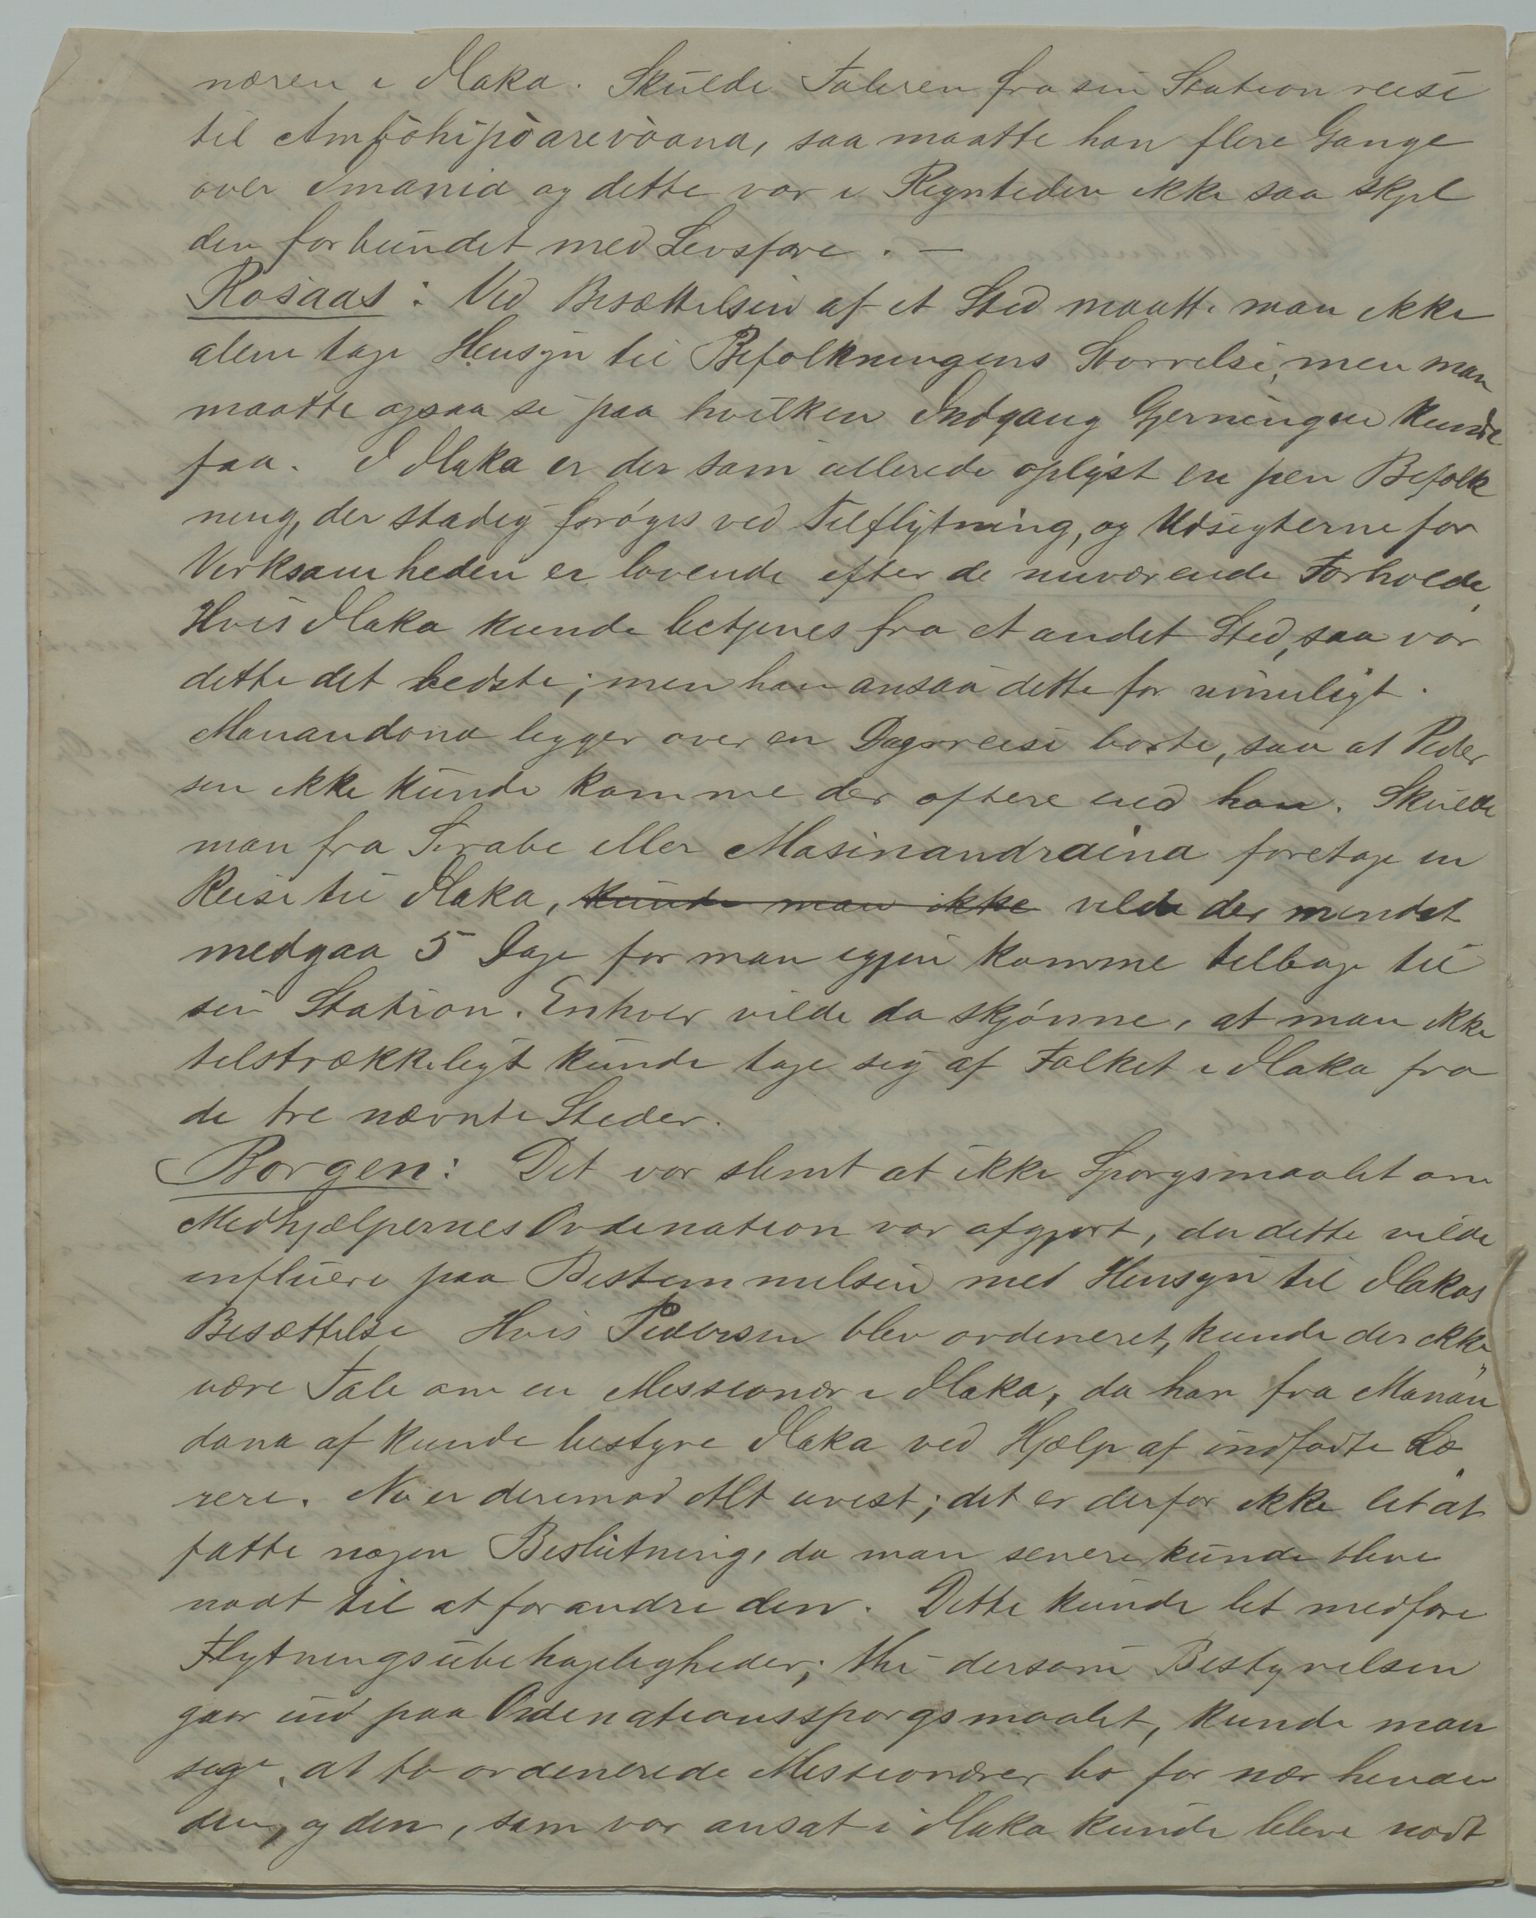 næren i Ilaka. Skulde Taleren fra sin Station reise
til Ambohiponarevoana, saa maatte han flere Gange
over Imania og dette var i Regntiden ikke saa skjel
den forbundet med Livsfare. —
Rosaas: Ved Besættelsen af et Sted maatte man ikke
alene tage Hensyn til Befolkningens Størrelse, men man
maatte ogsaa se paa hvilken Indgang Gjerningen kunde
faa. I Ilaka er der som allerede oplyst en pen Befolk
ning, der stadig forøges ved Tilflytning, og Udsigterne for
Virksomheden er lovende efter de nuværende Forholde.
Hvis Ilaka kunde betjenes fra et andet Sted, saa var
dette det bedste; men han ansaa dette for umuligt.
Manandona ligger over en Dagsreise borte, saa at Peder
sen ikke kunde komme der oftere end han. Skulde
man fra Sirabe eller Masinandraina foretage en
Reise til Ilaka, kunde man ikke vilde der mindst
medgaa 5 Dage før man igjen komme tilbage til
sin Station. Enhver vilde da skjønne, at man ikke
tilstrækkeligt kunde tage sig af Folket i Ilaka fra
de tre nævnte Steder.
Borgen: Det var slemt at ikke Spørgsmaalet om
Medhjælpernes Ordination var afgjort, da dette vilde
influere paa Bestemmelsen med Hensyn til Ilakas
Besættelse Hvis Pedersen blev ordineret, kunde der ikke
være Tale om en Missionær i Ilaka, da han fra Manan
dona af kunde bestyre Ilaka ved Hjælp af indfødte Læ
rere. Nu er derimod Alt uvist; det er derfor ikke let at
fatte nogen Beslutning, da man senere kunde blive
nødt til at forandre den. Dette kunde let medføre
Flytningsubehageligheder; thi dersom Bestyrelsen
gaar ind paa Ordinationsspørgsmaalet, kunde man
sige, at to ordinerede Missionærer bo for nær hinan
den, og den, som var ansat i Ilaka kunde blive nødt